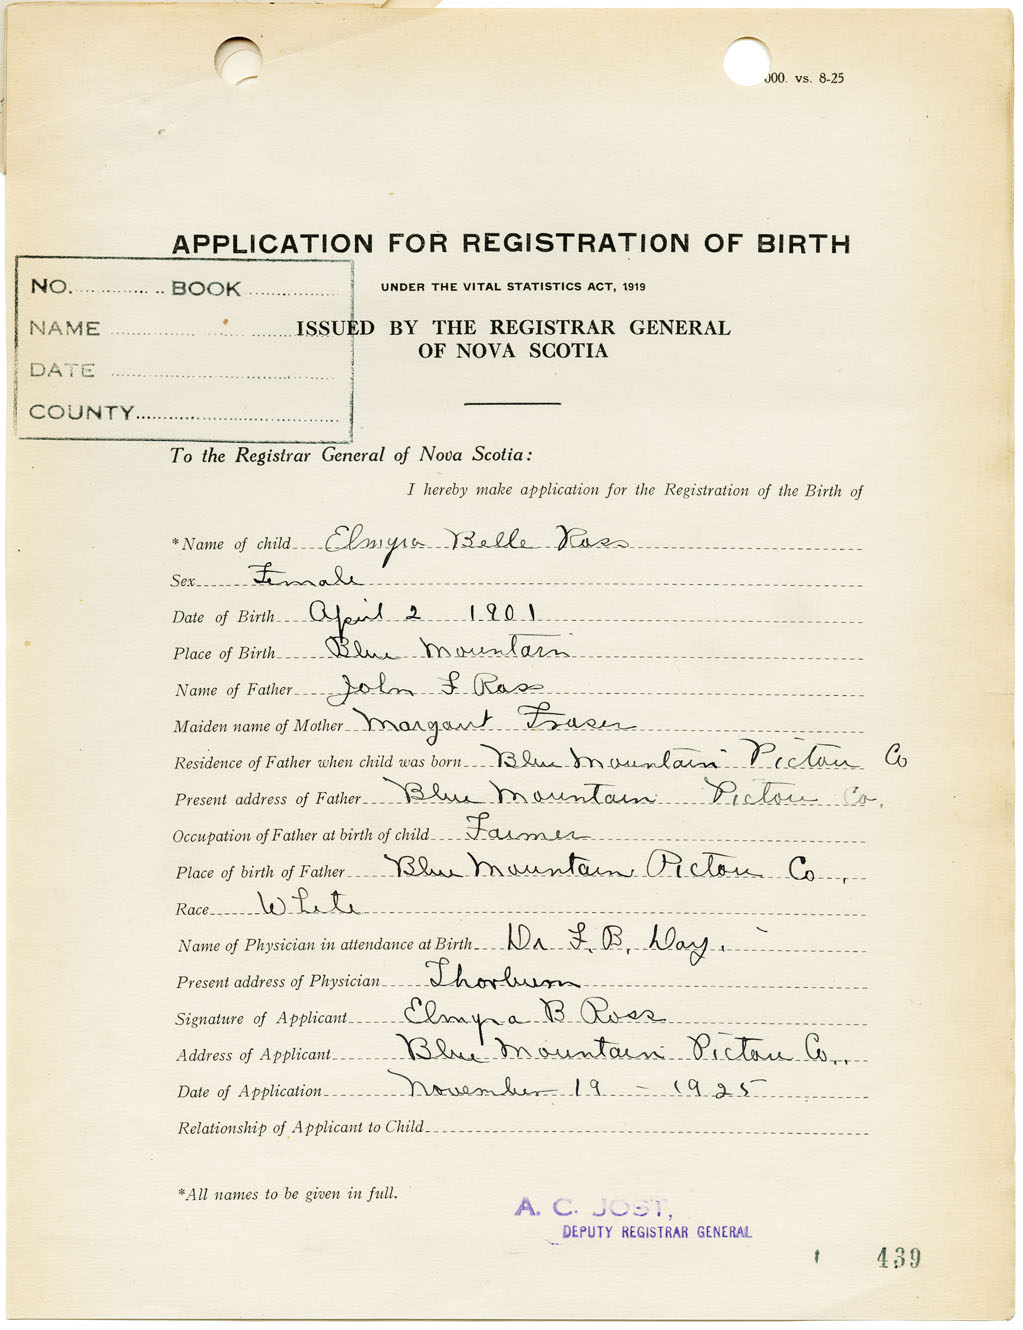 000. vs. 8-25
APPLICATION FOR REGISTRATION OF BIRTH
UNDER THE VITAL STATISTICS ACT, 1919
ISSUED BY THE REGISTRAR GENERAL
OF NOVA SCOTIA
NO. BOOK
NAME
DATE
COUNTY
To the Registrar General of Nova Scotia:
I hereby make application for the Registration of the Birth of
*Name of child Elmyra Belle Ross
Sex Female
Date of Birth April 2 1901
Place of Birth Blue Mountain
Name of Father John F Ross
Maiden name of Mother Margaret Fraser
Residence of Father when child was born Blue Mountain Pictou Co
Present address of Father Blue Mountain Pictou Co,
Occupation of Father at birth of child Farmer
Place of birth of Father Blue Mountain Pictou Co.,
Race White
Name of Physician in attendance at Birth Dr F. B. Day.
Present address of Physician Thorburn
Signature of Applicant Elmyra B Ross
Address of Applicant Blue Mountain Pictou Co.,
Date of Application November 19 - 1925
Relationship of Applicant to Child
*All names to be given in full.
A. C. JOST,
DEPUTY REGISTRAR GENERAL
439